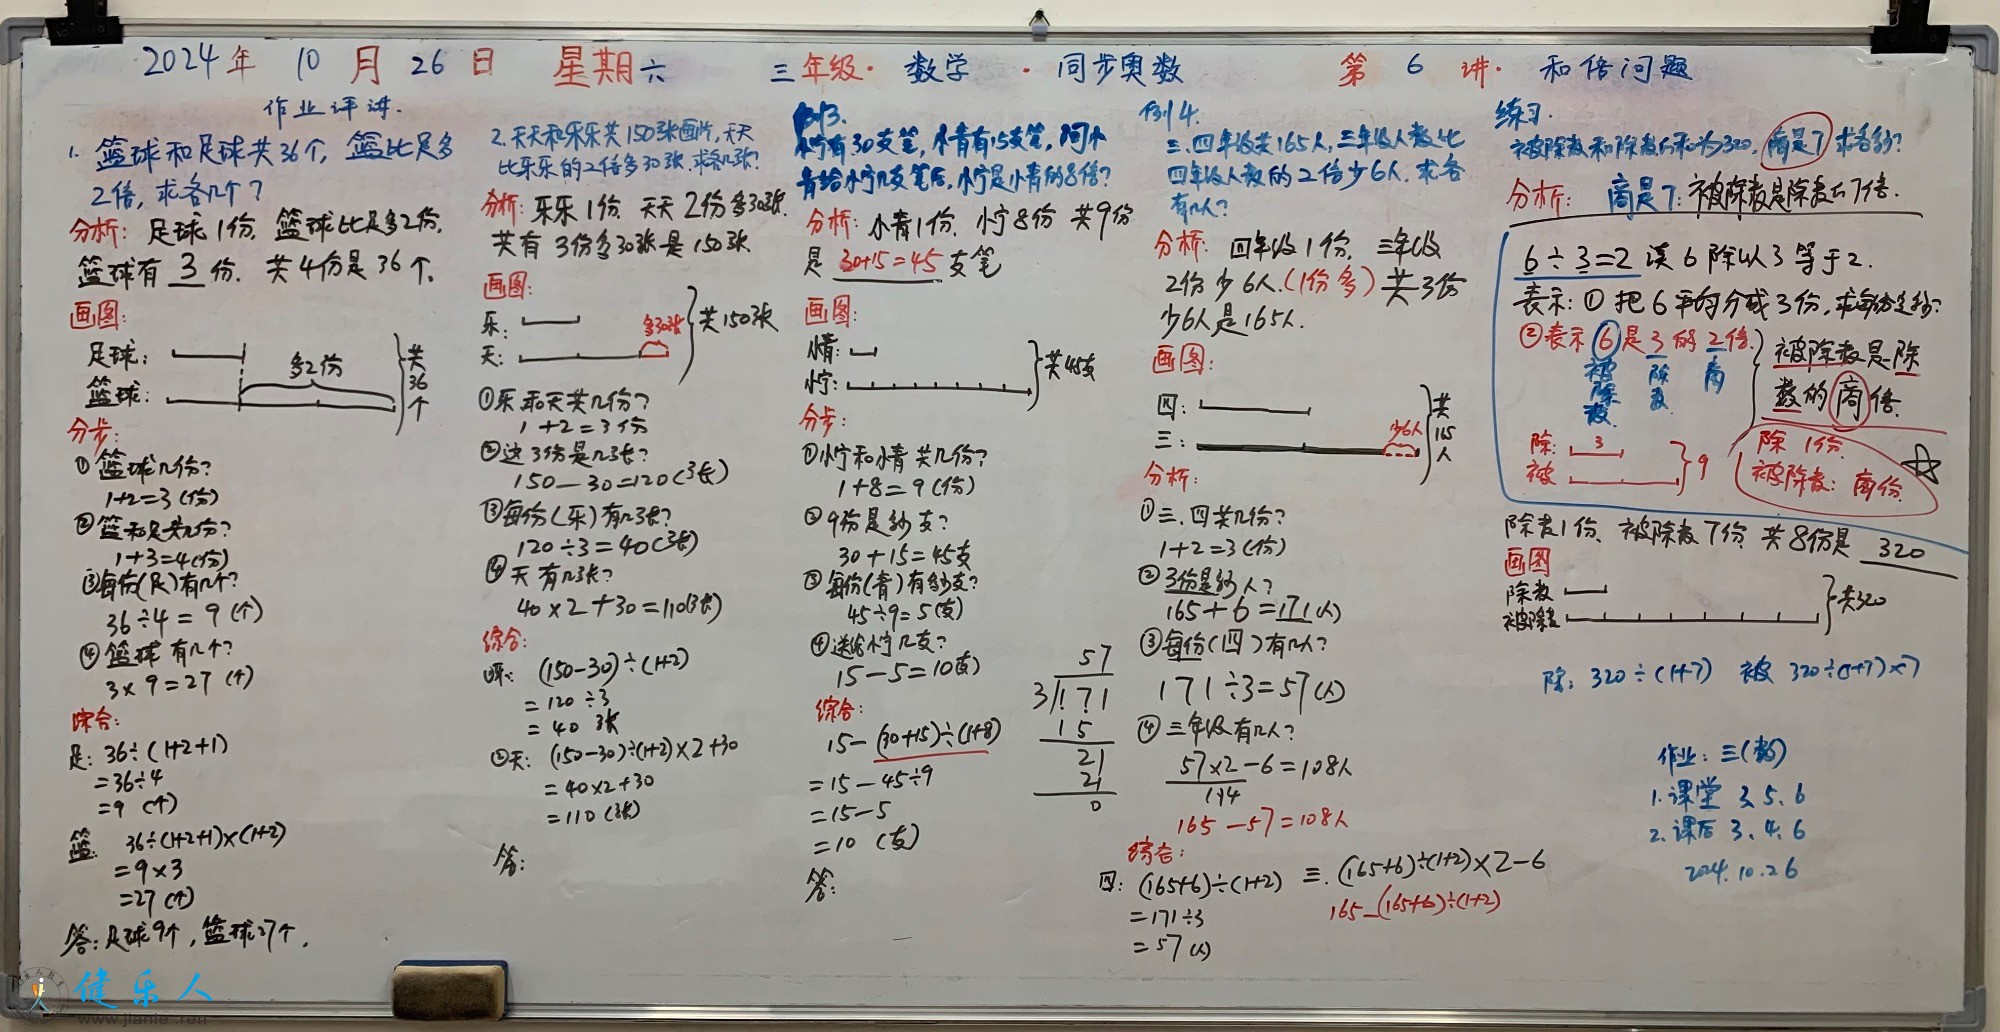 2024年 10月 26日 星期六 三年级·数学·同步奥数 第6讲·和倍问题
作业评讲.
1. 篮球和足球共36个, 篮比足多
2倍, 求各几个?
分析: 足球1份, 篮球比足多2份,
篮球有 3 份. 共4份是36个.
画图:
足球:
篮球:
多2份
共
36
个
分步:
① 篮球几份?
1+2=3 (份)
② 篮和足共几份?
1+3=4(份)
③ 每份(足)有几个?
36÷4=9(个)
④ 篮球有几个?
3×9=27(个)
综合:
足: 36÷(1+2+1)
=36÷4
=9 (个)
篮: 36÷(1+2+1)×(1+2)
=9×3
=27(个)
答:足球9个,篮球27个.
2.天天和乐乐共150张画片,天天
比乐乐的2倍多30张.求各几张?
分析: 乐乐1份. 天天2份多30张.
共有3份多30张是150张
画图:
乐:
天:
多30张
共150张
①乐和天共几份?
1+2=3份
②这3份是几张?
150-30=120(张)
③每份(乐)有几张?
120÷3=40(张)
④天有几张?
40×2+30=110(张)
综合:
(150-30)÷(1+2)
=120÷3
=40 张
②天: (150-30)÷(1+2)×2+30
=40×2+30
=110(张)
答:
例3.
小宁有30支笔, 小青有15支笔, 问小
青给小宁几支笔后, 小宁是小青的8倍?
分析: 小青1份. 小宁8份 共9份
是 30+15=45 支笔
画图:
小情:
小宁:
共45支
分步:
①小宁和小情共几份?
1+8=9(份)
②9份是多少支?
30+15=45支
③每份(青)有多少支?
45÷9=5(支)
④送给小宁几支?
15-5=10(支)
综合:
15-(30+15)÷(1+8)
=15-45÷9
=15-5
=10 (支)
答:
例4.
三.四年级共165人,三年级人数比
四年级人数的2倍少6人.求各
有几人?
分析: 四年级1份. 三年级
2份少6人.(1份多) 共3份
少6人是165人.
画图:
四:
三:
少6人
共
165
人
分析:
①三.四共几份?
1+2=3(份)
②3份是多少人?
165+6=171(人)
③每份(四)有几人?
171÷3=57(人)
57
3/171
15
21
21
0
④三年级有几人?
57×2-6=108人
114
165-57=108人
综合:
四: (165+6)÷(1+2)
=171÷3
=57(人)
三. (165+6)÷(1+2)×2-6
165-(165+6)÷(1+2)
练习.
被除数和除数的和为320, 商是7 求各多少?
分析: 商是7: 被除数是除数的7倍.
6÷3=2 读6除以3等于2.
表示: ① 把6平均分成3份,求每份是多少?
②表示6是3的2倍.
被除数
除数
商
被除数是除
数的商倍.
除: 3
被
9
除 1份
被除数: 商份.
除数1份、被除数7份 共8份是 320
画图
除数
被除数
共320
除: 320÷(1+7) 被 320÷(1+7)×7
作业: 三(数)
1.课堂 3、5、6
2.课后 3、4、6
2024.10.26
健乐人
www.jianle.ren